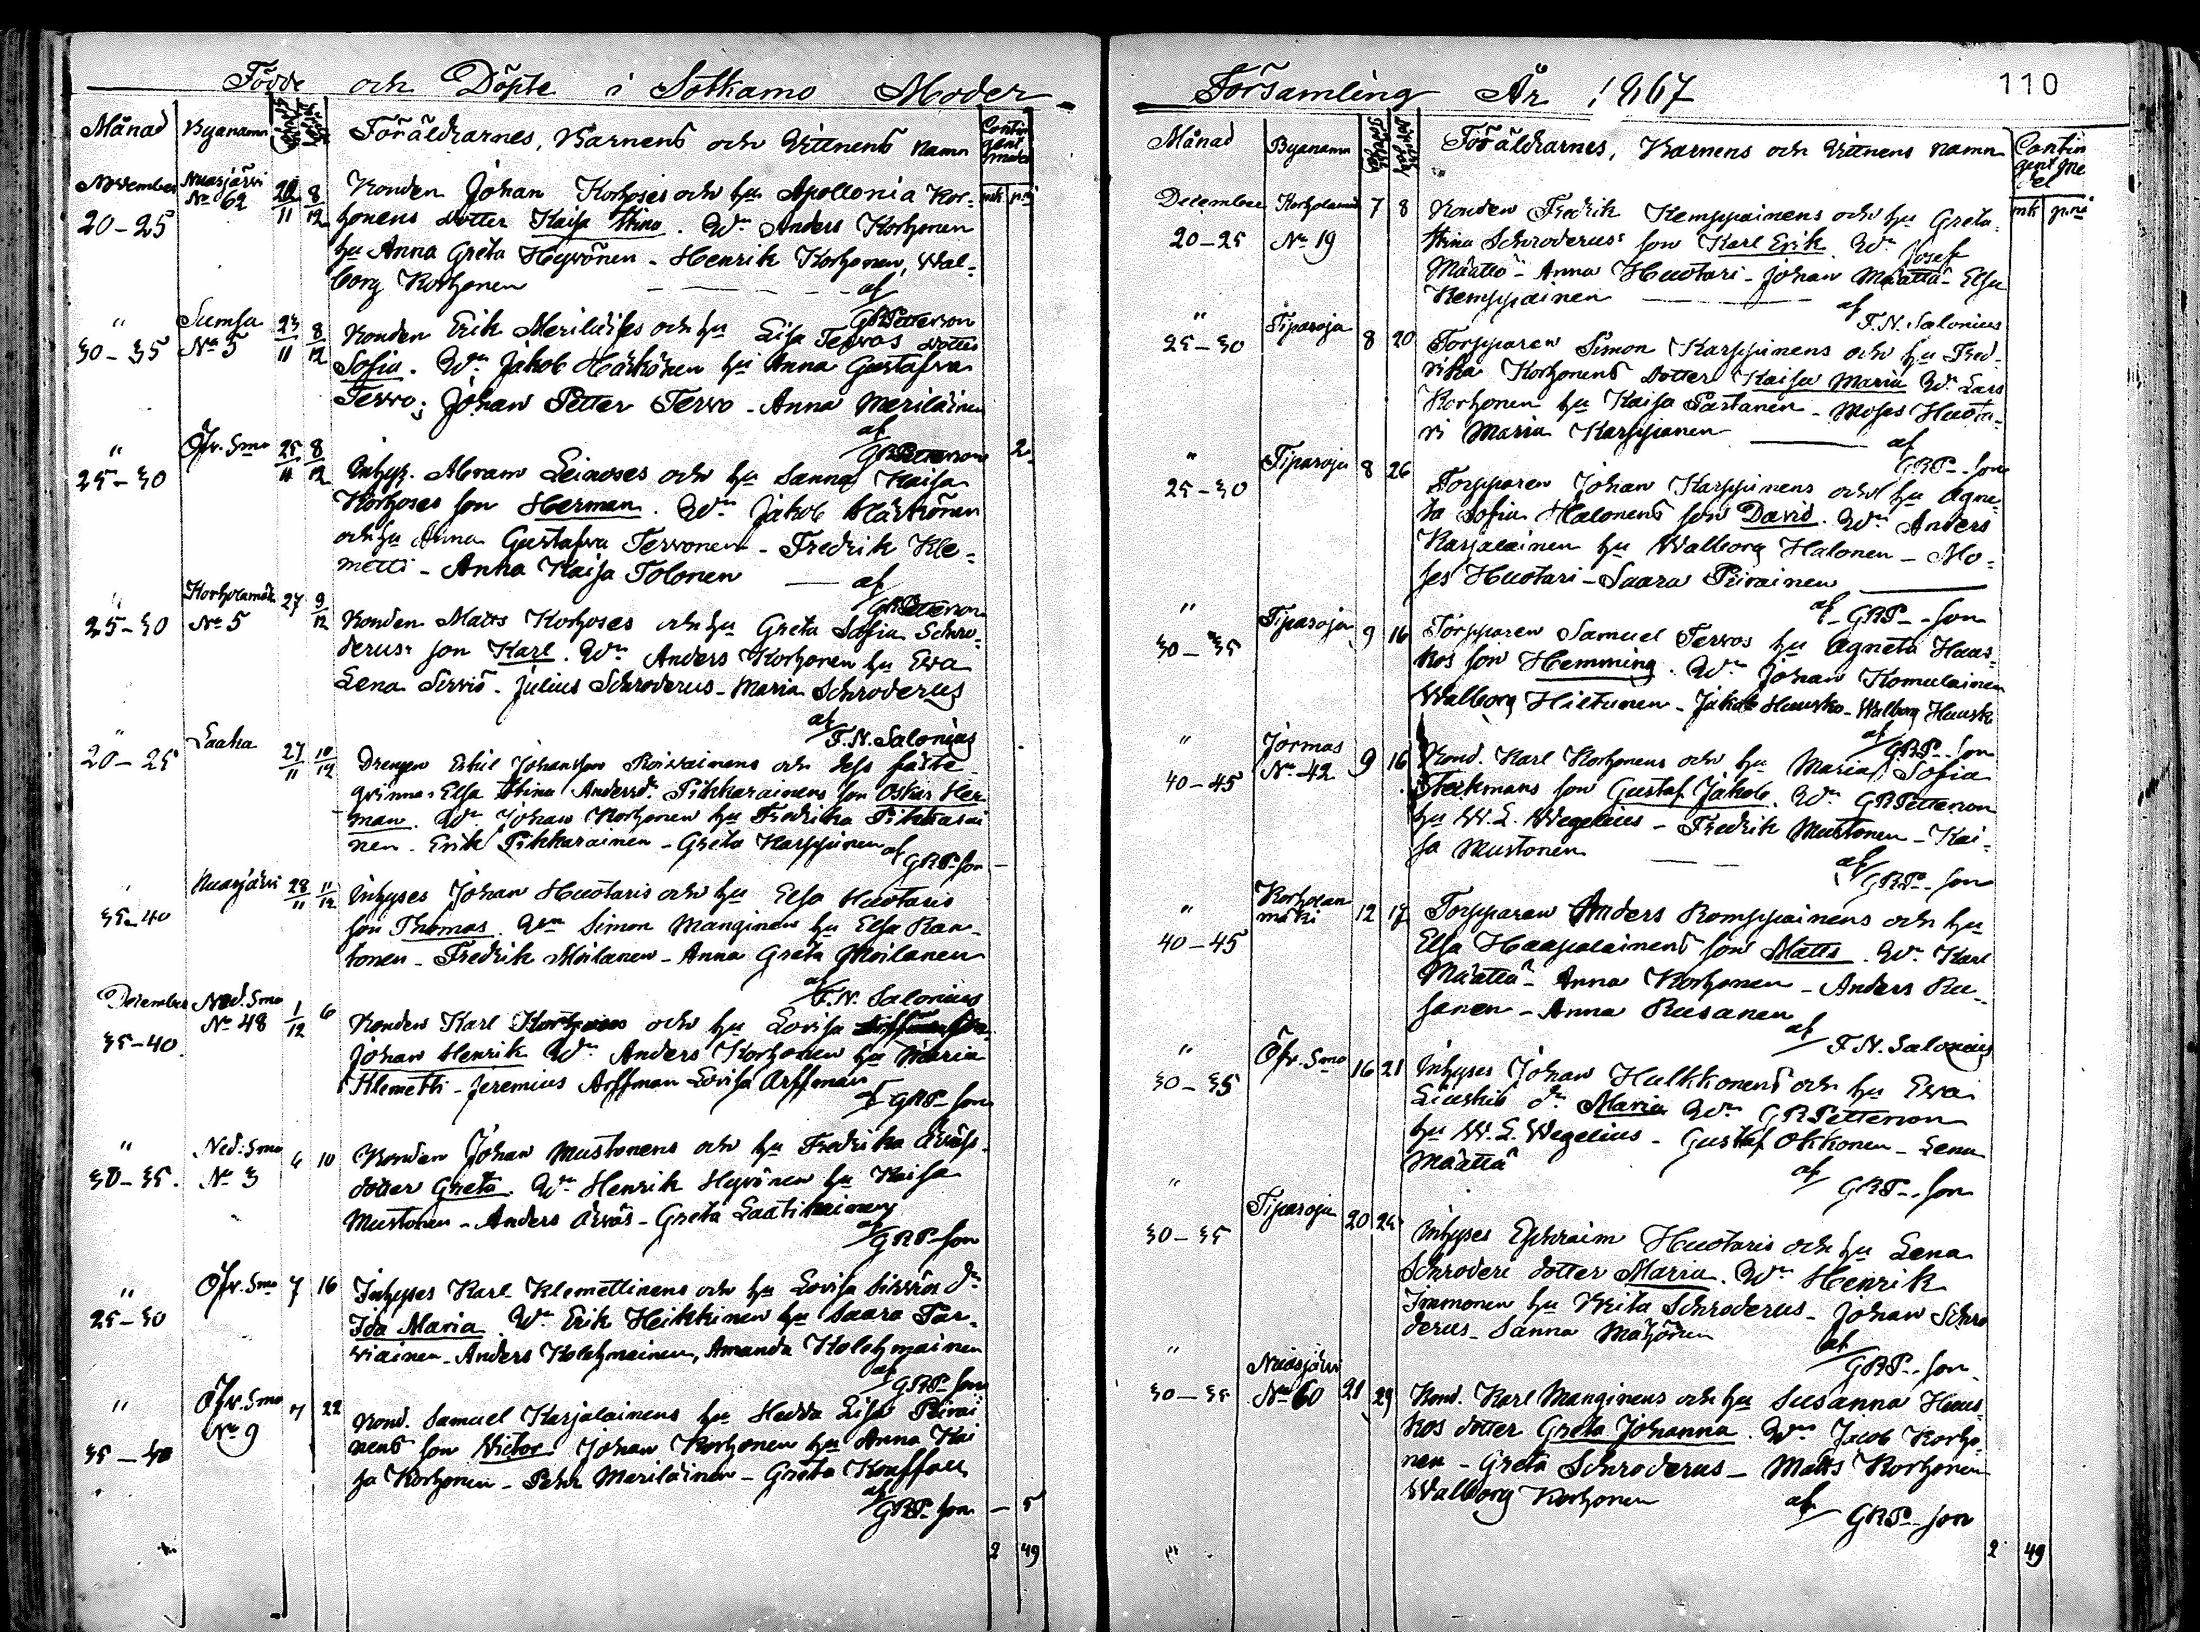 Födde och Döpte i Sotkamo Moder
Månad Byanamn Föräldrarnes, Barnens och Vittnens namn
November Nuasjärvi Bonden Johan Korhoses och hu Apollonia Kor-
20-25 No 62 11 8/12 honens dotter Kaisa Stina. Wn Anders Korhonen
hu Anna Greta Hyvönen - Henrik Korhonen, Wal-
borg Korhonen af
GRPetterson
" Sumsa 23/11 8/12 Bonden Erik Meriläises och hu Lisa Tervos dotter
30-35 No 5 Sofia. Wn Jakob Härkönen hu Anna Gustafva
Tervo; Johan Petter Tervo - Anna Meriläinen
af
GRPetterson
" Öfv. Smo 25/11 8/12 2
25-30 Inhys. Abram Leinoses och hu Sanna Kaisa
Korhoses son Herman. Wn Jakob Härkönen
och hu Anna Gustafva Tervonen - Fredrik Kle-
metti - Anna Kaisa Tolonen af
GRPetterson
" Korholamäki 27 9/12
25-30 No 5 Bonden Matts Korhoses och hu Greta Sofia Schro-
derus: son Karl. Wn Anders Korhonen hu Ewa
Lena Sirviö - Julius Schroderus - Maria Schroderus
af
F.N. Salonius
" Laaka 27/11 10/12
20-25 Drengen Eskil Johansson Roivainens och dess fäste-
qvinna Elsa Stina Andersdr Pikkarainens son Oskar Her-
man. Wn Johan Korhonen hu Fredrika Pikkarai
nen - Erik Pikkarainen - Greta Karppinen af
GRP-son
" Nuasjärvi 28/11 11/12 Inhyses Johan Huotaris och hu Elsa Huotaris
35-40 son Thomas. Wn Simon Manginen hu Elsa Ran-
tonen - Fredrik Moilanen - Anna Greta Moilanen
af
F.N. Salonius
December Ned. Smo 1/12 6
No 48 Bonden Karl Korhoses och hu Lovisa
35-40 Johan Henrik Wn Anders Korhonen hu Maria
Klemetti - Jeremius Arffman Lovisa Arffman
af GRP-son
" Ned. Smo 6 10 Bonden Johan Mustonens och hu Fredrika Ärväs
30-35. No 3 dotter Greta. Wn Henrik Hyvönen hu Kaisa
Mustonen - Anders Ärväs - Greta Laatikainen
af
GRP-son
" Öfv. Smo 7 16 Inhyses Karl Klemettinens och hu Lovisa Sirviös dr
25-30 Ida Maria. Wn Erik Heikkinen hu Saara Tar-
viainen - Anders Kolehmainen, Amanda Kolehmainen
af
GRP-son
" Öfv. Smo 7 22
35-40 No 9 Bond. Samuel Karjalainens hu Hedda Lisa Piirai
nens son Victor. Johan Korhonen hu Anna Kai
sa Korhonen - Petr Meriläinen - Greta Kauffali
af
GRP-son - 5
2 49
Församling År 1867 110
Månad Byanamn Föräldrarnes, Barnens och Vittnens namn Contingentmedel
mk pni
December Korholamäki 7 8 Bonden Fredrik Kemppainens och hu Greta
20-25 No 19 Stina Schroderus: son Karl Erik Wn Josef
Määttä - Anna Huotari - Johan Määttä - Elsa
Kemppainen af
F.N. Salonius
" Tipasoja 8 20
25-30 Torpparen Simon Karppinens och hu Fred-
rika Korhonens dotter Kaisa Maria Wn Lars
Korhonen hu Kaisa Partanen - Moses Huota-
ri Maria Karppanen af
GRP-son
" Tipasoja 8 26
25-30 Torpparen Johan Karppinens och hu Agne-
ta Sofia Halonens son David. Wn Anders
Karjalainen hu Walborg Halonen - Mo-
ses Huotari - Saara Piirainen
af GRP-son
" Tipasoja 9 16
30-35 Torpparen Samuel Tervos hu Agneta Haus-
kos son Hemming. Wn Johan Komulainen
Walborg Hiltunen - Jakob Hausko - Walborg Hausko
af
GRP-son
" Jormas 9 16
40-45 No 42 Bond. Karl Korhonens och hu Maria Sofia
Stekmans son Gustaf Jakob. Wn GRPetterson
hu W. L. Wegelius - Fredrik Mustonen - Kai-
sa Mustonen
af
GRP-son
" Korholanmäki 12 17
40-45 Torpparen Anders Romppainens och hu
Elsa Haapalainens son Matts. Wn Karl
Määttä - Anna Korhonen - Anders Ru-
sanen - Anna Rusanen
af
F.N. Salonius
" Öfv. Smo 16 21
30-35 Inhyses Johan Hulkkonens och hu Ewa
Liuskis dr Maria Wn GRPetterson
hu W. L. Wegelius - Gustaf Okkonen - Lena
Määttä
af
GRP-son
" Tipasoja 20 25
30-35 Inhyses Ephraim Huotaris och hu Lena
Schroderi dotter Maria. Wn Henrik
Immonen hu Brita Schroderus - Johan Schro
derus - Sanna Mähönen
af
GRP-son
" Nuasjärvi
30-35 No 60 21 29 Bond. Karl Manginens och hu Susanna Haus-
kos dotter Greta Johanna. Wn Jacob Korho-
nen - Greta Schroderus - Matts Korhonen
Walborg Korhonen af
GRP-son
2 49